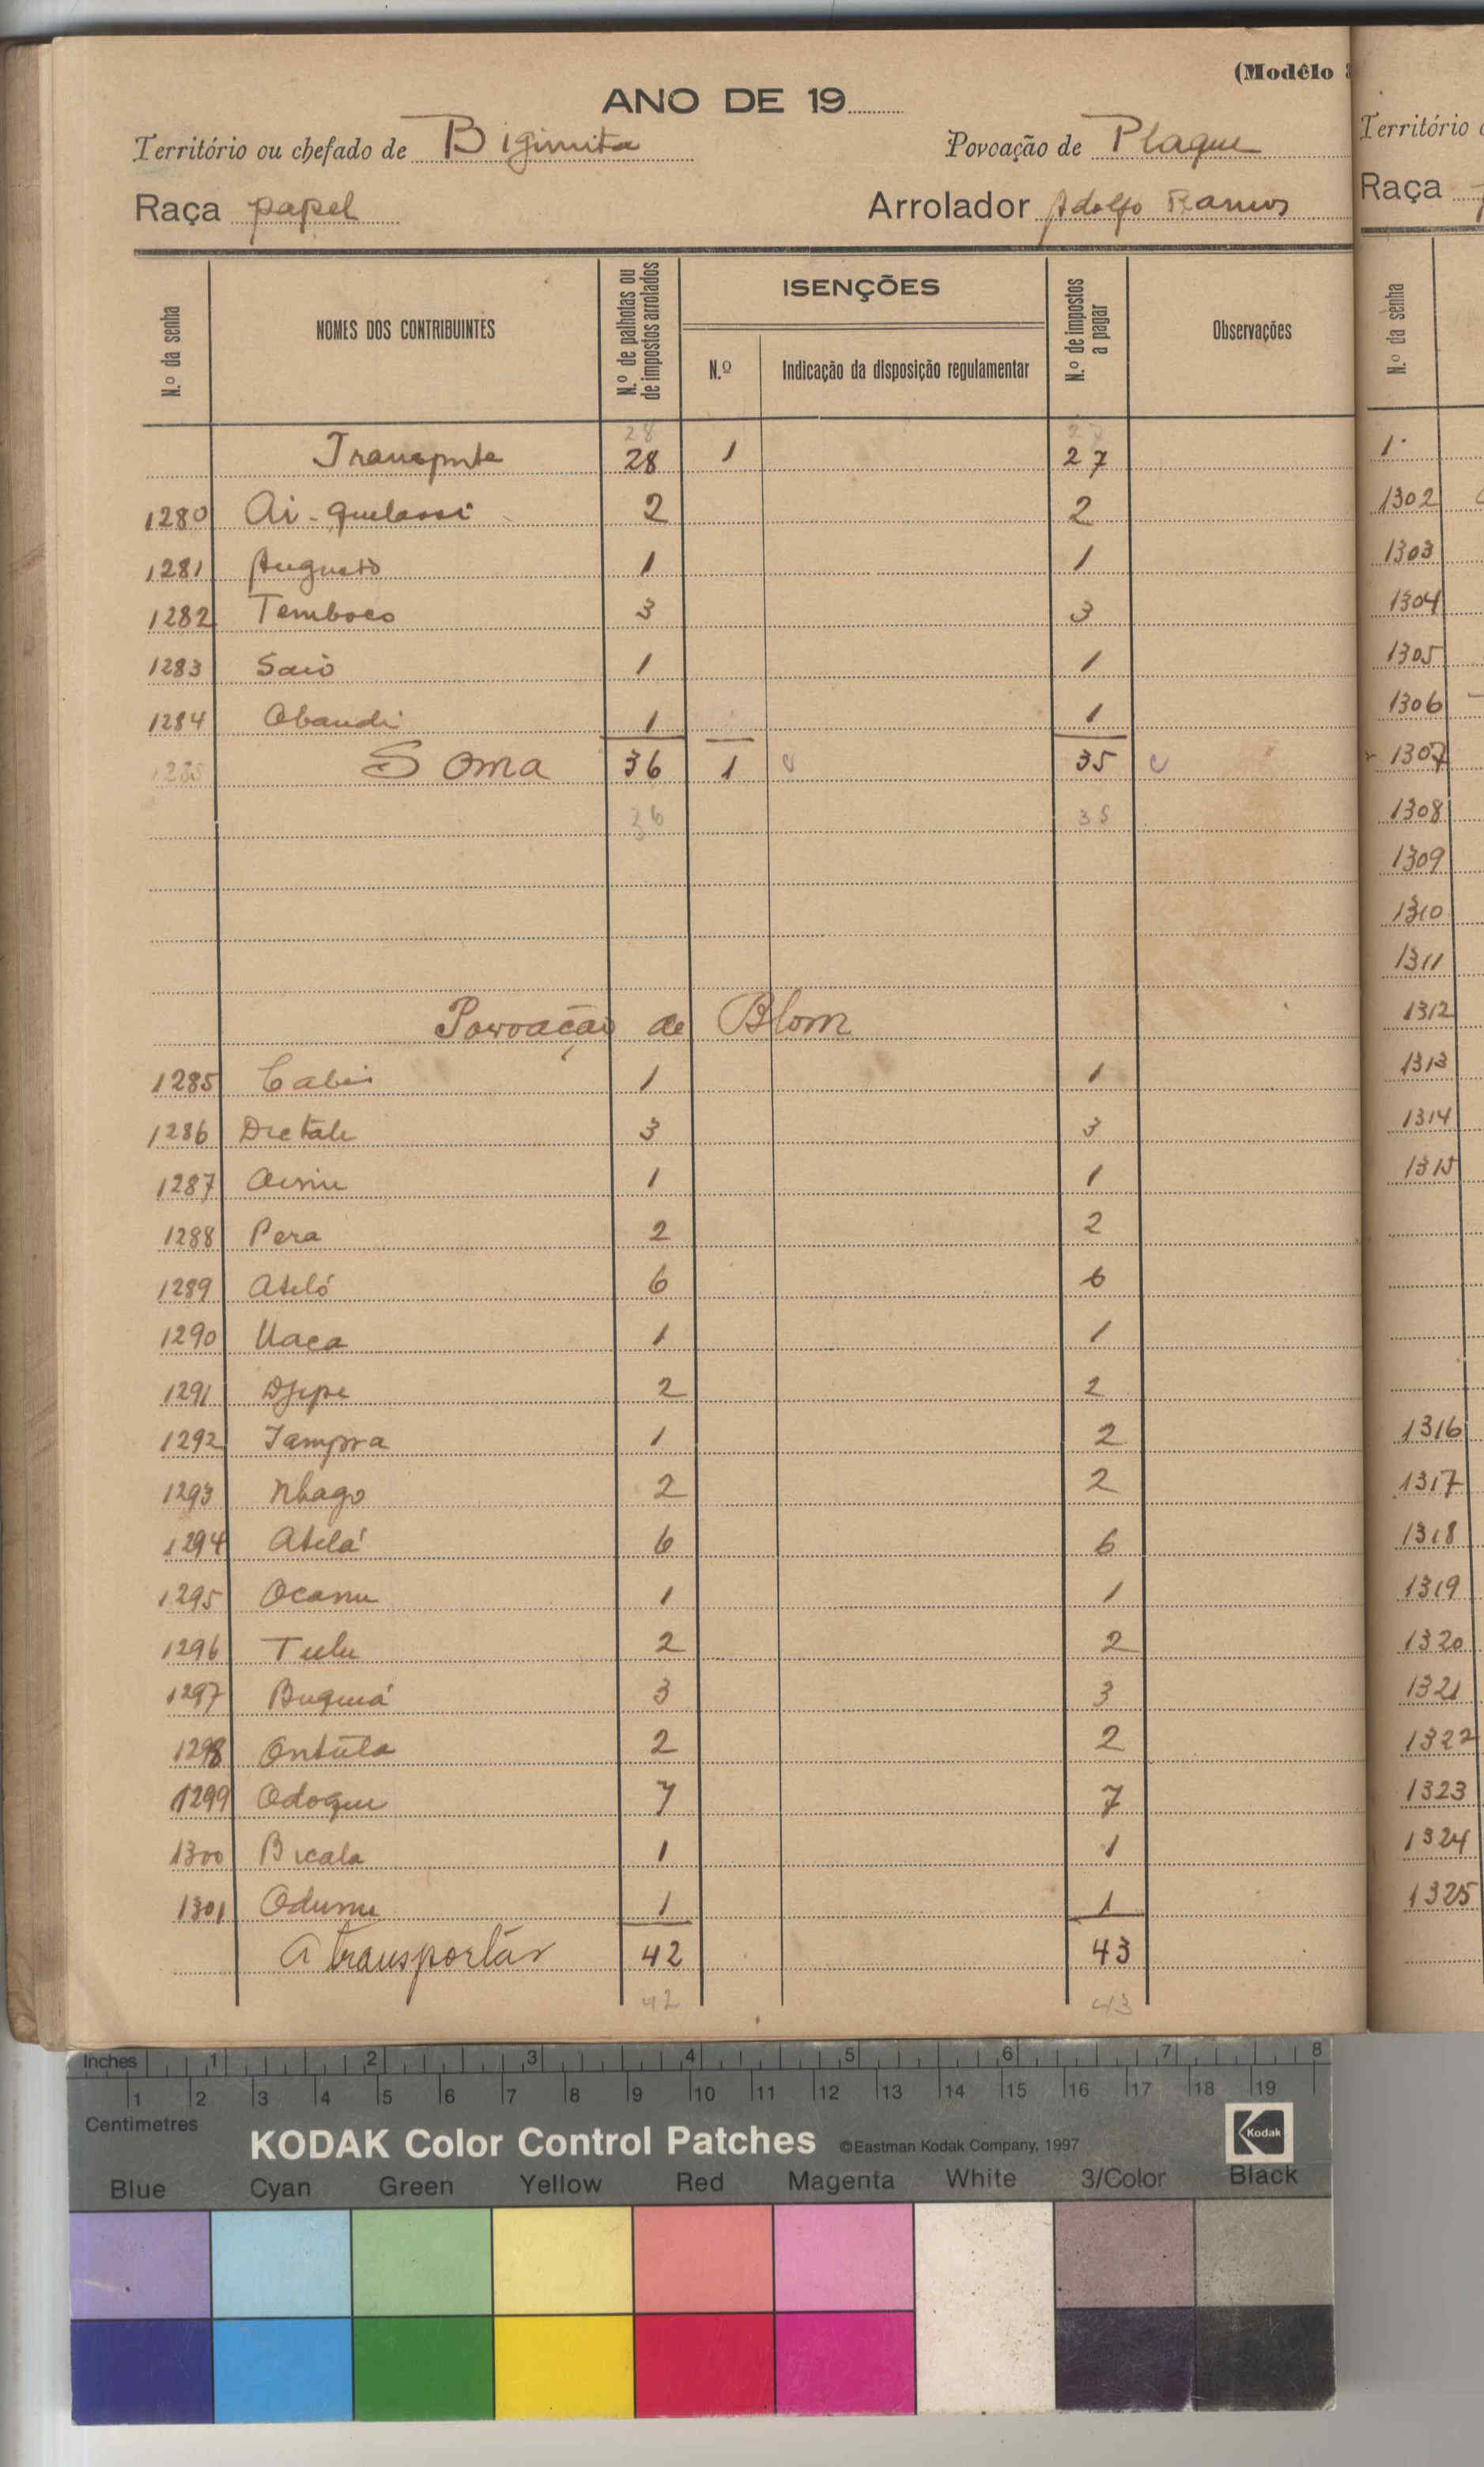 (Modêlo
ANO DE 19
Território ou chefado de Bigimita Povoação de Plaque
Raça papel Arrolador Adolfo Ramos
N.º da senha NOMES DOS CONTRIBUINTES N.º de palhotas ou de impostos arrolados ISENÇÕES N.º Indicação da disposição regulamentar N.º de impostos a pagar Observações
28 27
Transporte 28 1 27
1280 Ai-quelassi 2 2
1281 Augusto 1 1
1282 Temboco 3 3
1283 Saió 1 1
1284 Obandi 1 1
1285 Soma 36 1 35
36 35
Povoação de Blom
1285 Cabi 1 1
1286 Dictale 3 3
1287 1 1
1288 Pera 2 2
1289 Ateló 6 6
1290 Uaca 1 1
1291 Djepe 2 2
1292 Tampra 1 2
1293 Nhago 2 2
1294 Atelá 6 6
1295 Ocanu 1 1
1296 Tulu 2 2
1297 Buguiá 3 3
1298 Ontúla 2 2
1299 Odoque 7 7
1300 Bicala 1 1
1301 Odumu 1 1
A transportár 42 43
42 43
Território
Raça
N.º da senha
1
1302
1303
1304
1305
1306
1307
1308
1309
1310
1311
1312
1313
1314
1315
1316
1317
1318
1319
1320
1321
1322
1323
1324
1325
Inches 1 2 3 4 5 6 7 8
1 2 3 4 5 6 7 8 9 10 11 12 13 14 15 16 17 18 19
Centimetres
KODAK Color Control Patches ©Eastman Kodak Company, 1997 Kodak
Blue Cyan Green Yellow Red Magenta White 3/Color Black